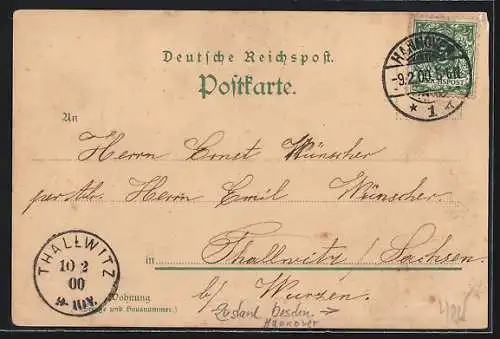 Deutsche Reichspost.
Postkarte.
HANNOVER
-9.2.00. 5-6N.
* 1
An
Herrn Ernst Wünscher
per Adr. Herrn Emil Wünscher.
in Thallwitz / Sachsen
b/ Wurzen.
THALLWITZ
10 2
00
Wohnung
und Hausnummer.)
Zustand
Hannover